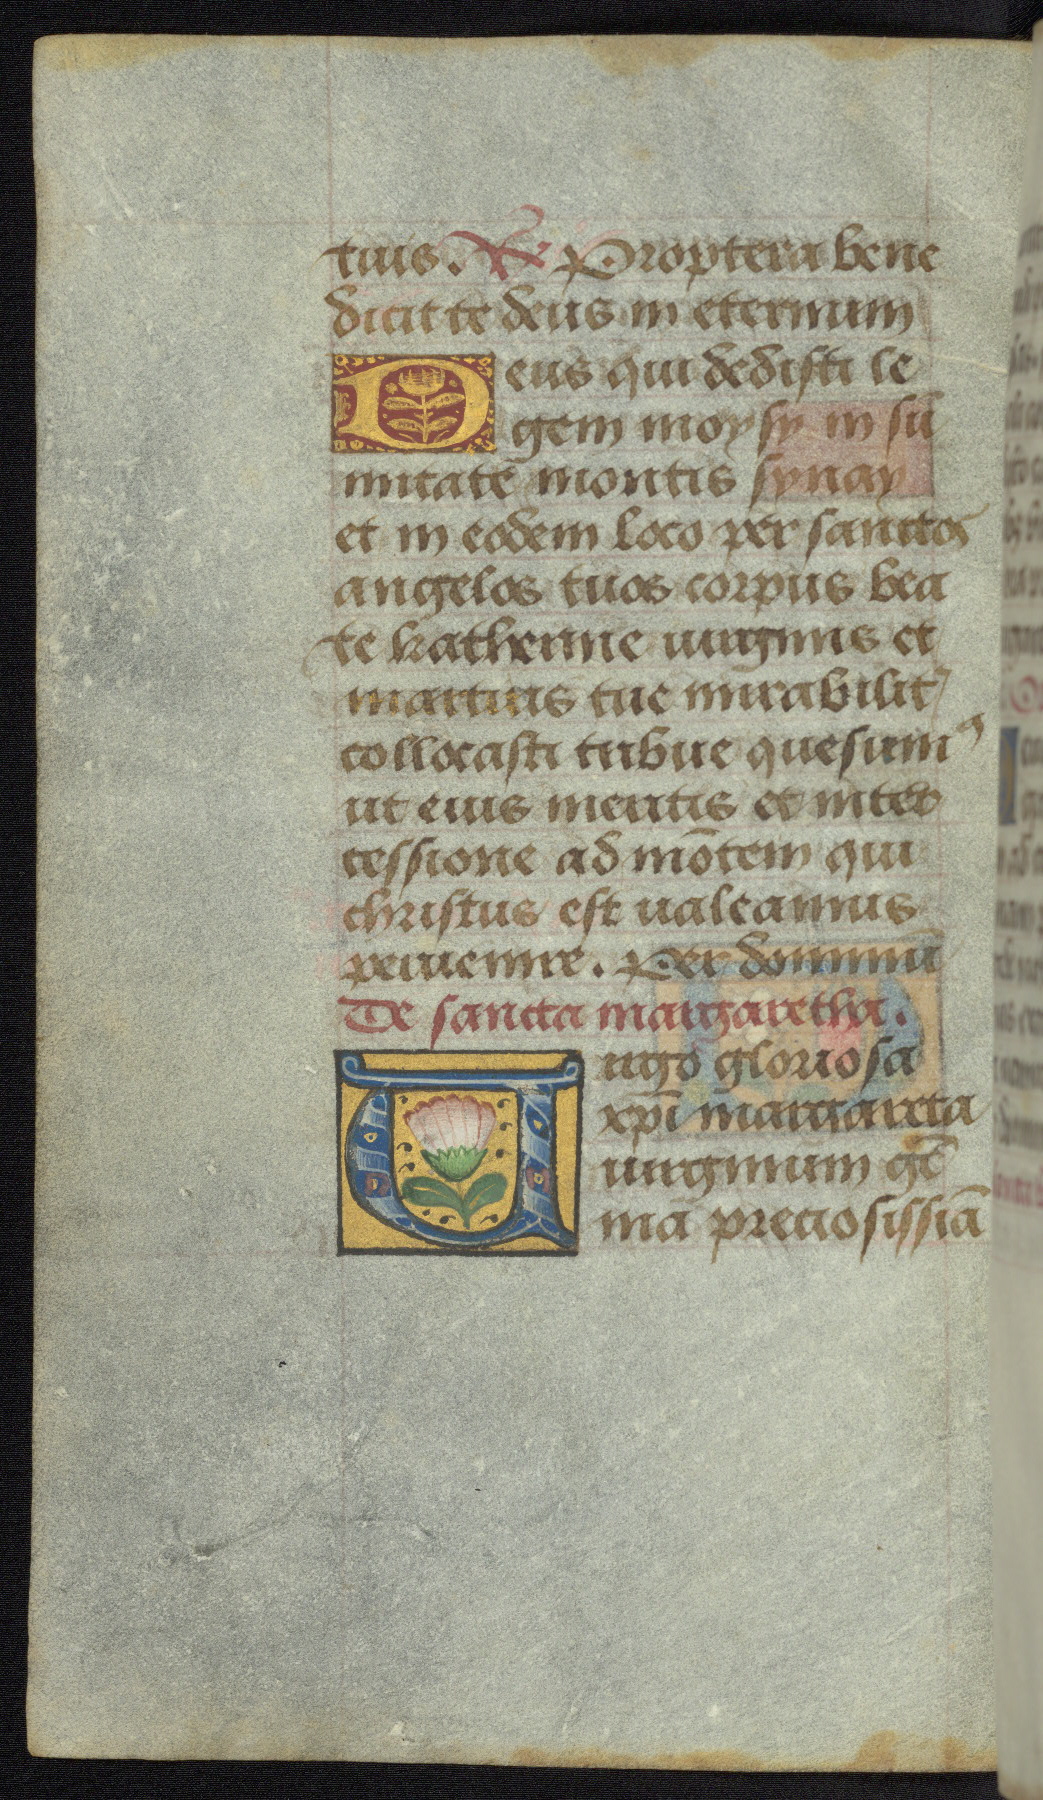 tuis. R̷ Propterea bene
dicit te deus in eternum
Deus qui dedisti le
gem moysy in sū
mitatē montis synay
et in eodem loco per sanctos
angelos tuos corpus bea
te katherine uirginis et
martiris tue mirabilit̕
collocasti tribue quesumꝰ
ut eius meritis et inter
cessione ad mōtem qui
christus est ualeamus
peruenire. Per dominū
De sancta margaretha.
Uirgo gloriosa
xp̄i margareta
uirginum gē
ma preciosissiā